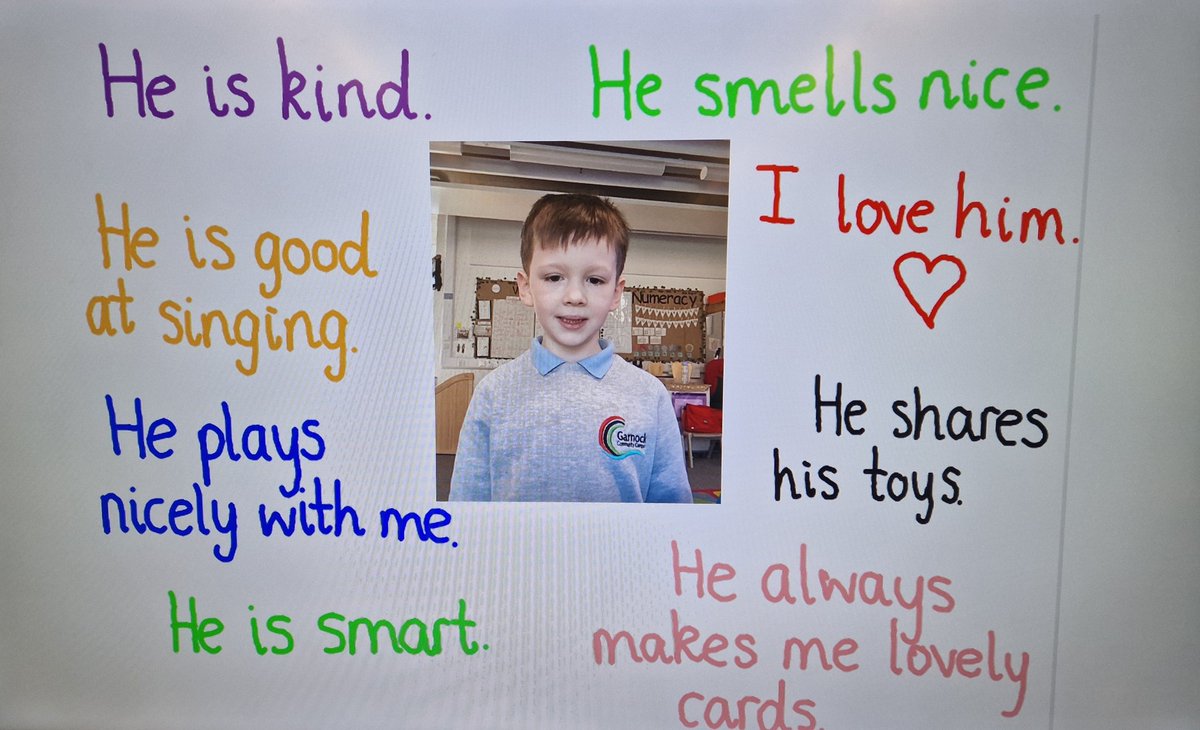 He is kind.
He smells nice.
I love him.
He is good
at singing.
Numeracy
He shares
his toys.
He plays
nicely with me.
Garnock
Community Campus
He is smart.
He always
makes me lovely
cards.